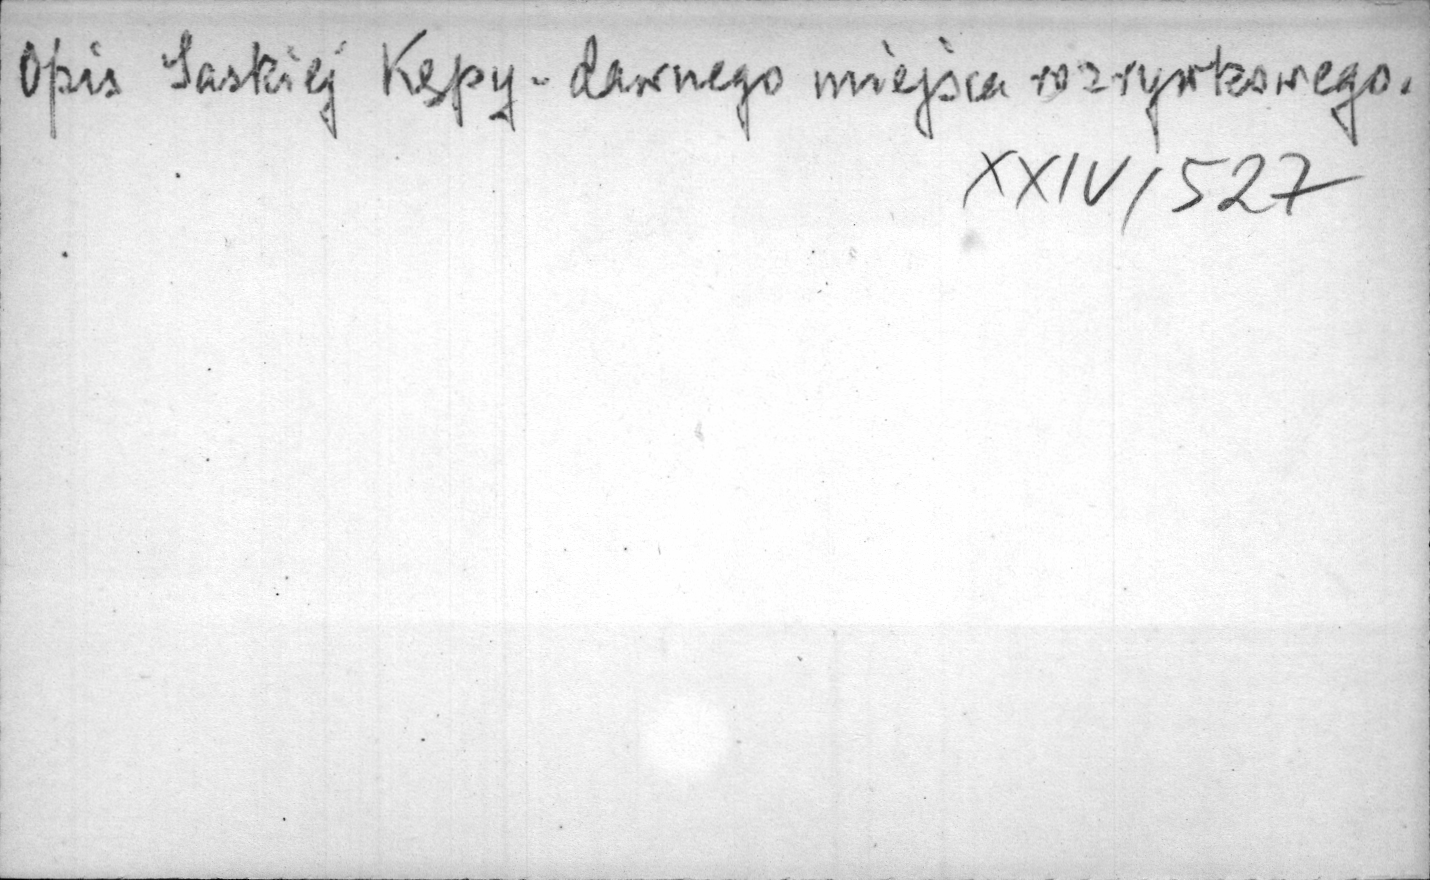 Opis Saskiej Kępy - dawnego miejsca rozrywkowego.
XXIV/527